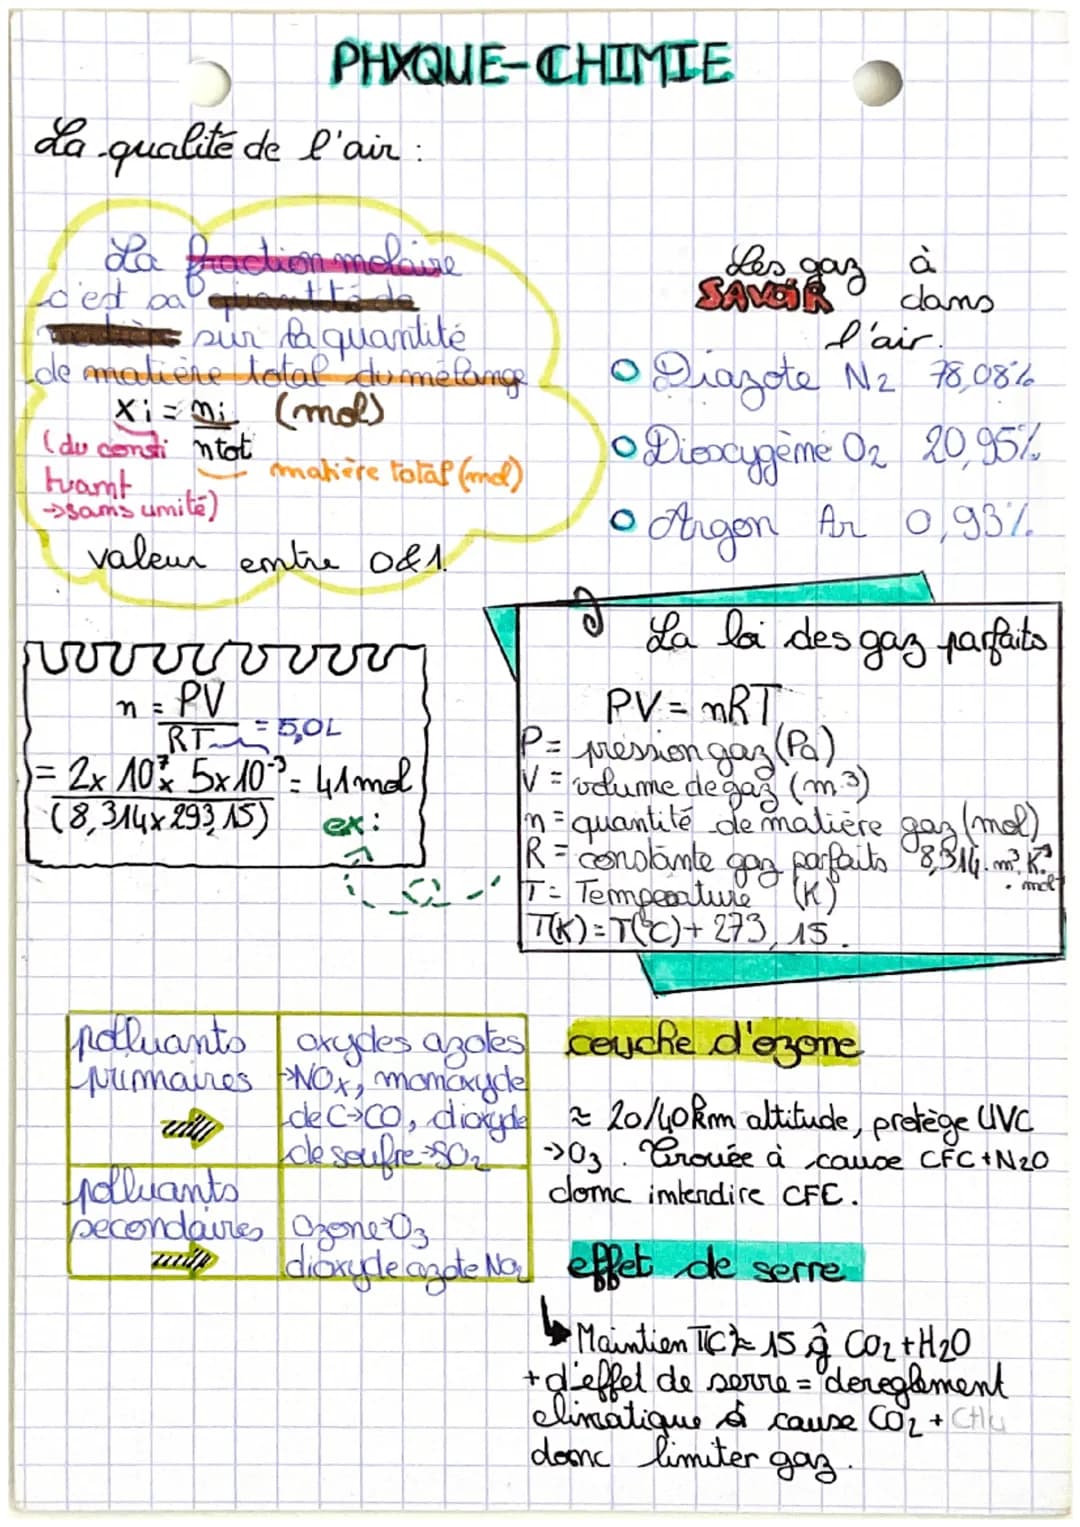 PHXQUE-CHIMIE
La qualité de l'air :
La fraction molaire
c'est sa quantité de
matière sur la quantité
de matière total du mélange
xi = ni (mol)
ntot
(du consti
tuant
→sans unité)
matière total (mol)
valeur entre 0&1.
Les gaz à
SAVOIR dans
l'air.
Diazote N2 78,08%
Dioxygène O2 20,95%
Argon Ar 0,93%
n = PV
RT = 5,0L
= 2x 10⁷x 5x10⁻³ = 41mol
(8,314x293,15)
ex :
La loi des gaz parfaits
PV = nRT
P= pression gaz (Pa)
V = volume de gaz (m³)
n = quantité de matière gaz (mol)
R = constante gaz parfaits 8,314. m³.K
. mol
T = Température (K)
T(K) = T(°C) + 273, 15.
polluants
primaires
oxydes azotes
→NOx, monoxyde
de C→CO, dioxyde
de soufre→SO2
polluants
secondaires
Ozone→O3
dioxyde azote NO2
couche d'ozone
≈ 20/40km altitude, protège UVC
→O3. Trouée à cause CFC+N2O
donc interdire CFC.
effet de serre
Maintien T(C)≈ 15 ĝ CO2+H2O
+ d'effet de serre = dereglement
climatique à cause CO2 + CH4
donc limiter gaz.